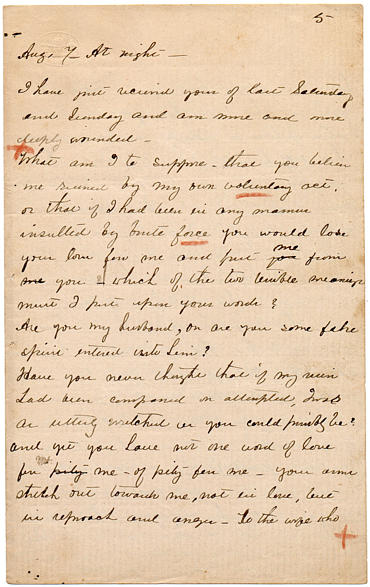 5
Aug. 7 - At night -
I have just received yours of last Saturday
and Sunday and am more and more
deeply wounded -
What am I to suppose - that you believe
me ruined by my own voluntary act,
or that if I had been in any manner
insulted by brute force you would lose
your love for me and put me from
you - which of the two terrible meanings
must I put upon your words?
Are you my husband, or are you some false
spirit entered into him?
Have you never thought that if my ruin
had been compassed or attempted, I was
as utterly wretched as you could possibly be?
and yet you have not one word of love
for me - of pity for me - your arms
stretch out towards me, not in love, but
in reproach and anger - To the wife who